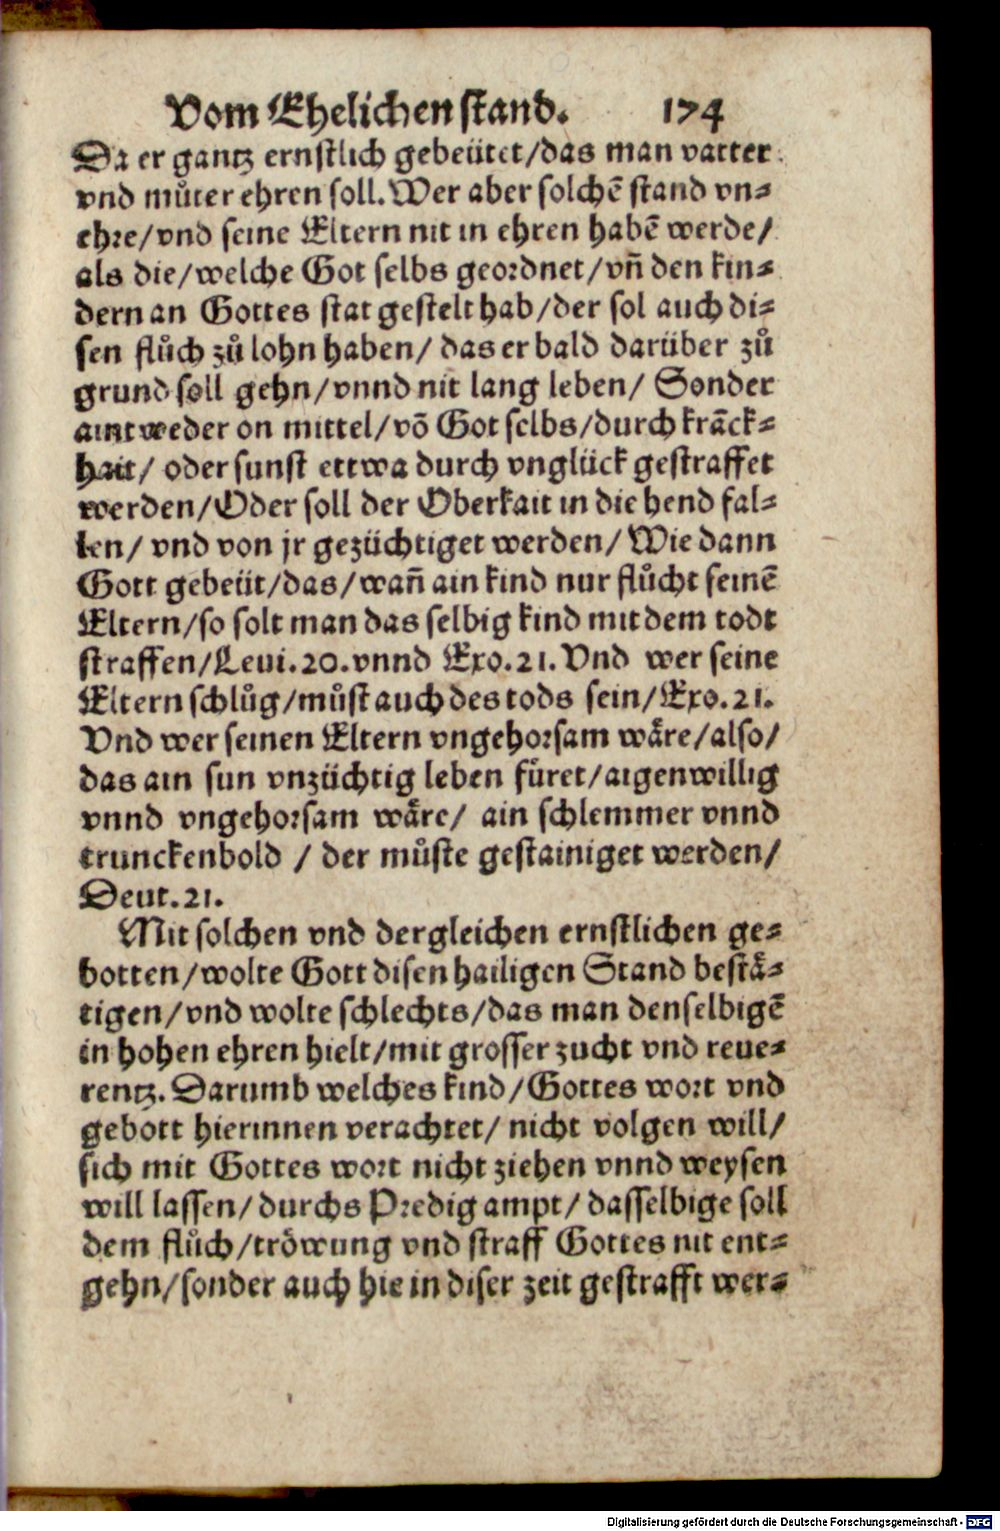 Vom Ehelichen stand. 174
Da er gantz ernstlich gebeütet/das man vatter
vnd můter ehren soll. Wer aber solchē stand vn⸗
ehre/vnd seine Eltern nit in ehren habē werde/
als die/welche Got selbs geordnet/vñ den kin⸗
dern an Gottes stat gestelt hab/der sol auch di⸗
sen flůch zů lohn haben/ das er bald darüber zů
grund soll gehn/vnnd nit lang leben/ Sonder
aintweder on mittel/vō Got selbs/durch krāck⸗
hait/ oder sunst ettwa durch vnglück gestraffet
werden/Oder soll der Oberkait in die hend fal⸗
len/ vnd von jr gezüchtiget werden/ Wie dann
Gott gebeüt/das/wañ ain kind nur flůcht seinē
Eltern/so solt man das selbig kind mit dem todt
straffen/Leui.20.vnnd Exo.21. Vnd wer seine
Eltern schlůg/můst auch des tods sein/Exo.21.
Vnd wer seinen Eltern vngehorsam wäre/also/
das ain sun vnzüchtig leben füret/aigenwillig
vnnd vngehorsam wäre/ ain schlemmer vnnd
trunckenbold / der můste gestainiget werden/
Deut.21.
Mit solchen vnd dergleichen ernstlichen ge⸗
botten/wolte Gott disen hailigen Stand bestä⸗
tigen/vnd wolte schlechts/das man denselbigē
in hohen ehren hielt/mit grosser zucht vnd reue⸗
rentz. Darumb welches kind/Gottes wort vnd
gebott hierinnen verachtet/ nicht volgen will/
sich mit Gottes wort nicht ziehen vnnd weysen
will lassen/durchs Predig ampt/ dasselbige soll
dem flůch/tröwung vnd straff Gottes nit ent⸗
gehn/sonder auch hie in diser zeit gestrafft wer⸗
Digitalisierung gefördert durch die Deutsche Forschungsgemeinschaft - DFG